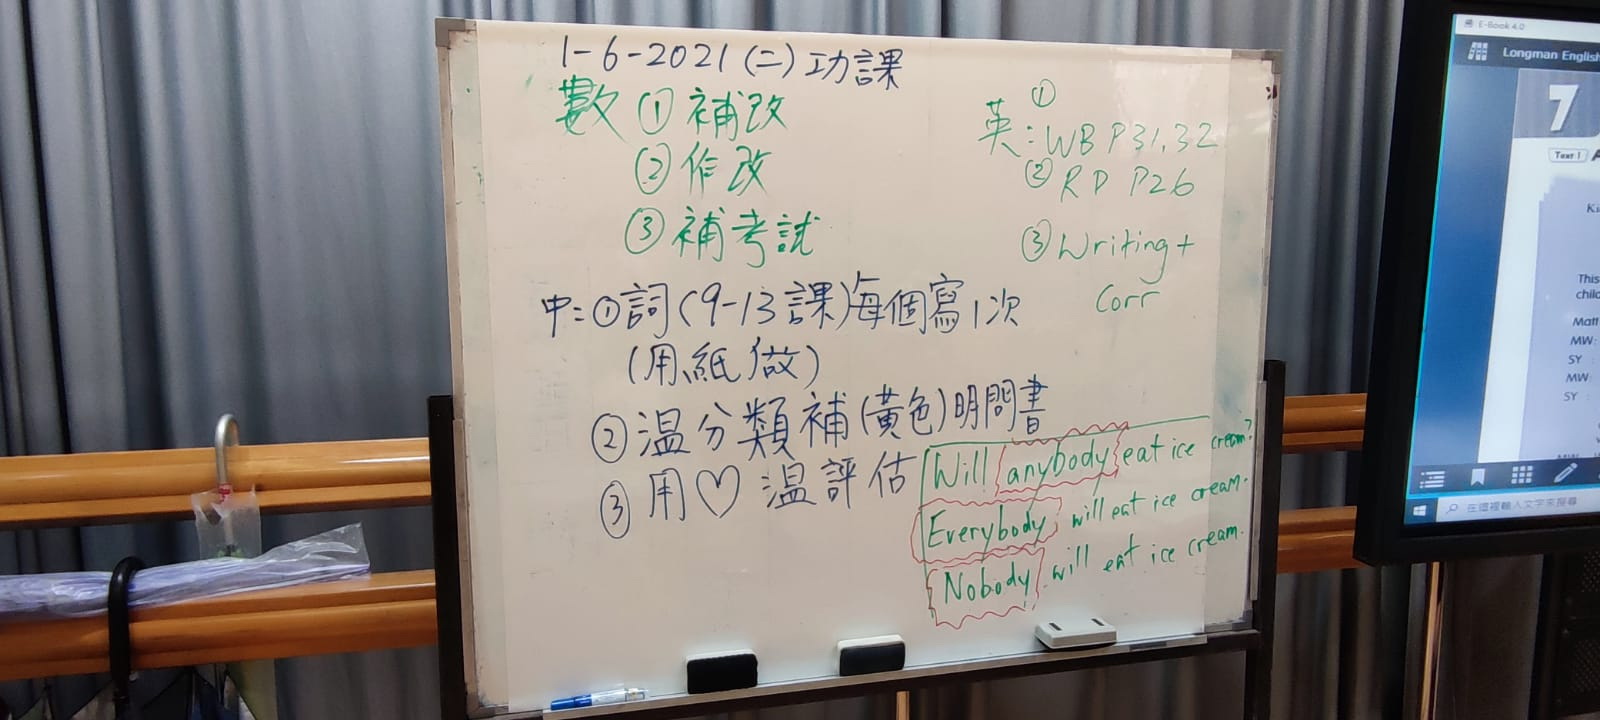 1-6-2021(二)功課
數 ①補改
②作改
③補考試
英:①WB P31,32
②RD P26
③Writing+
Corr
中:①詞(9-13課)每個寫1次
(用紙做)
②温分類補(黃色)明問書
③用♡温評估
Will anybody eat ice cream?
Everybody will eat ice cream.
Nobody will eat ice cream.
E-Book 4.0
Longman English
7
Text 1
This
chil
Matt
MW:
SY :
MW:
SY :
在這裡輸入文字來搜尋